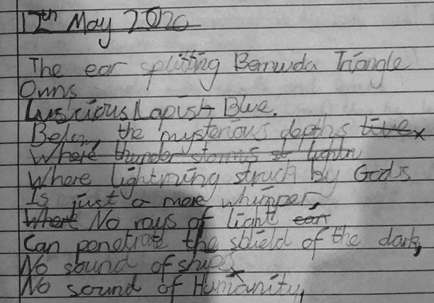 12th May 2020
The ear splitting Bermuda Triangle
Owns
Luscious Lapish Blue.
Below, the mysterious depths live
Where thunder storms st lightn
Where lightning struck by Gods
Is just a mere whimper,
Where No rays of light can
Can penetrate the shield of the dark,
No sound of ships
No sound of Humanity,